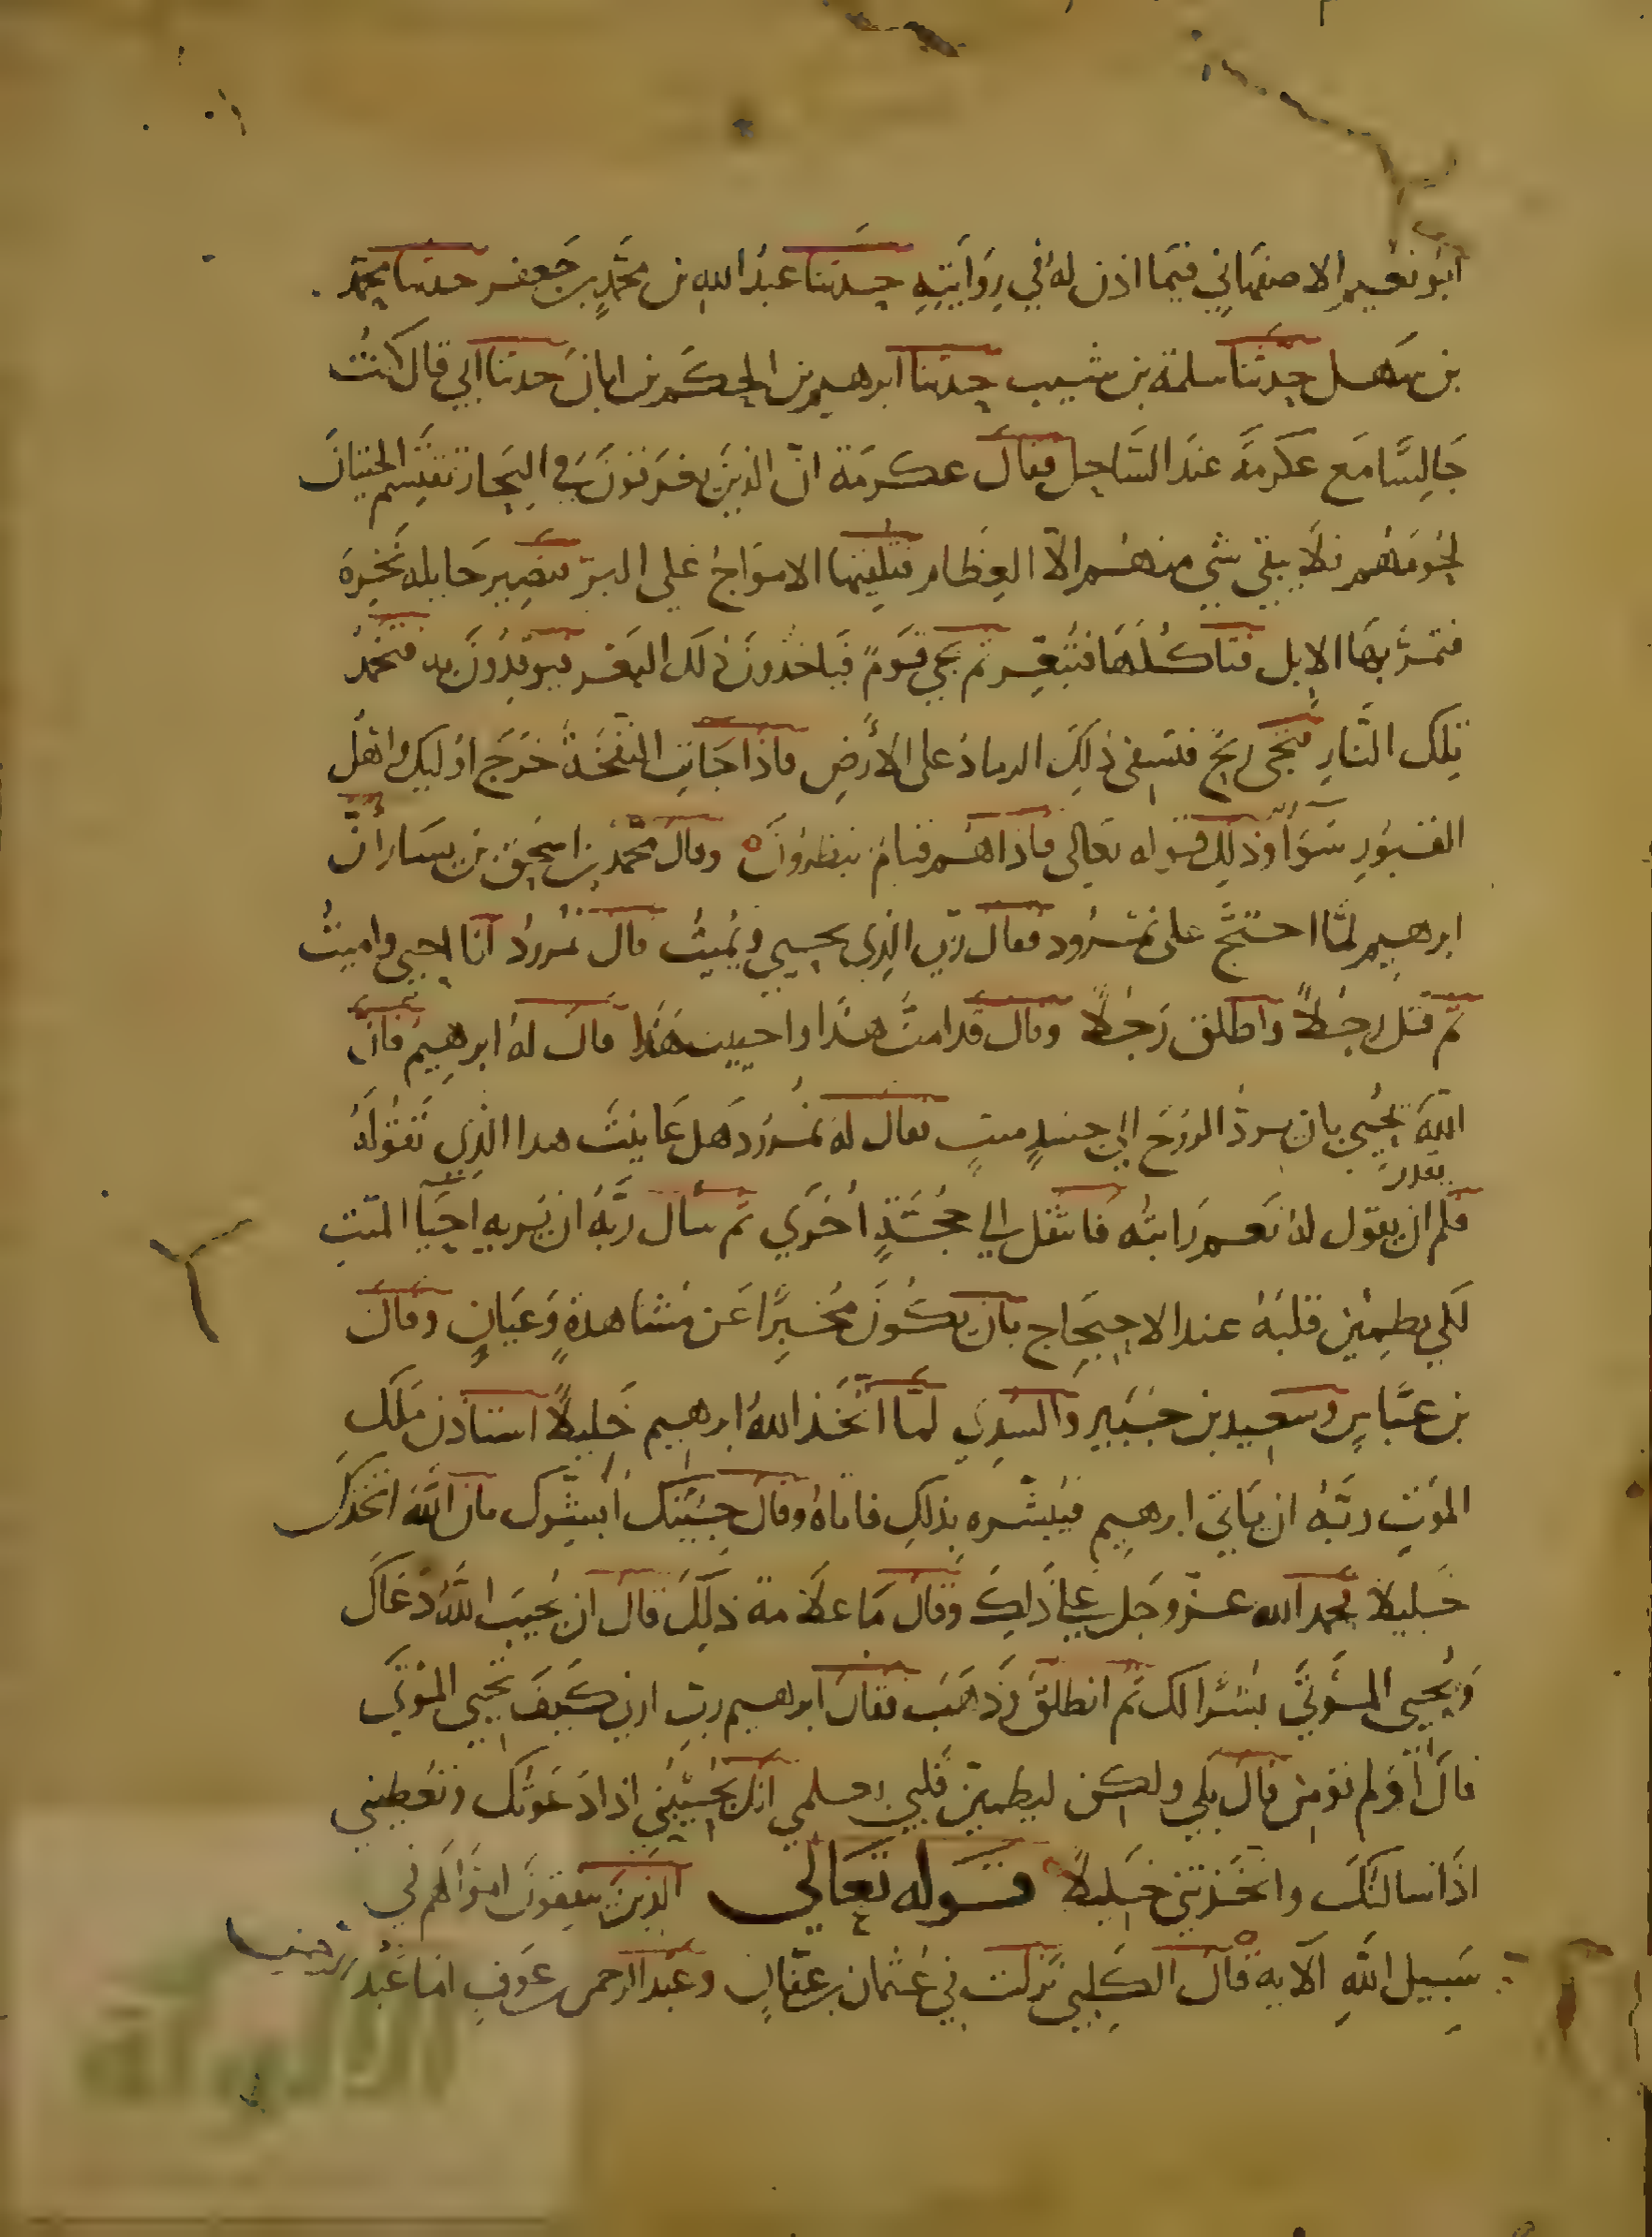 ابو نعيم الاصفهاني فيما اذن له في روايته حدثنا عبد الله بن محمد بن جعفر حدثنا محمد
بن سهل حدثنا سلمة بن شبيب حدثنا ابرهيم بن الحكم بن ابان حدثنا ابي قال كنت
جالسا مع عكرمة عند الساحل فقال عكرمة ان الذين يغرقون في البحار تقتسم الحيتان
لحومهم فلا يبقى شي منهم الا العظام فتلقيها الامواج على البر فتصير حايله نخرة
فتمر بها الابل فتاكلها فتبعر ثم يجي قوم فياخذون ذلك البعر فيوقدون به فتخمد
تلك النار فتجي ريح فتسفي ذلك الرماد على الارض فاذا جات النفخة خرج اوليك واهل
القبور سوا وذلك قوله تعالى فاذا هم قيام ينظرون ه وقال محمد بن اسحق بن يسار ان
ابرهيم لما احتج على نمرود فقال ربي الذي يحيي ويميت قال نمرود انا احيي واميت
ثم قتل رجلا واطلق رجلا وقال قد امت هذا واحييت هذا قال له ابرهيم فان
الله يحيي بان يرد الروح الى جسد ميت فقال له نمرود هل عاينت هذا الذي تقوله
فلم يقدر ان يقول له نعم رايته فانتقل الى حجة اخرى ثم سال ربه ان يريه احيا الميت
لكي يطمين قلبه عند الاحتجاج بان يكون مخبرا عن مشاهدة وعيان وقال
بن عباس وسعيد بن جبير والسدي لما اتخذ الله ابرهيم خليلا استاذن ملك
الموت ربه ان ياتي ابرهيم فيبشره بذلك فاتاه وقال جيتك ابشرك بان الله اتخذك
خليلا فحمد الله عز وجل على ذلك وقال ما علامة ذلك قال ان يجيب الله دعاك
ويحيي الموتى بسوالك ثم انطلق وذهب فقال ابرهيم رب ارني كيف تحيي الموتى
قال اولم تومن قال بلى ولكن ليطمين قلبي بعلمي انك تجيبني اذا دعوتك وتعطيني
اذا سالتك واتخذتني خليلا ه قوله تعالى الذين ينفقون اموالهم في
سبيل الله الآيه قال الكلبي نزلت في عثمان بن عفان وعبد الرحمن بن عوف اما عبد الرحمن